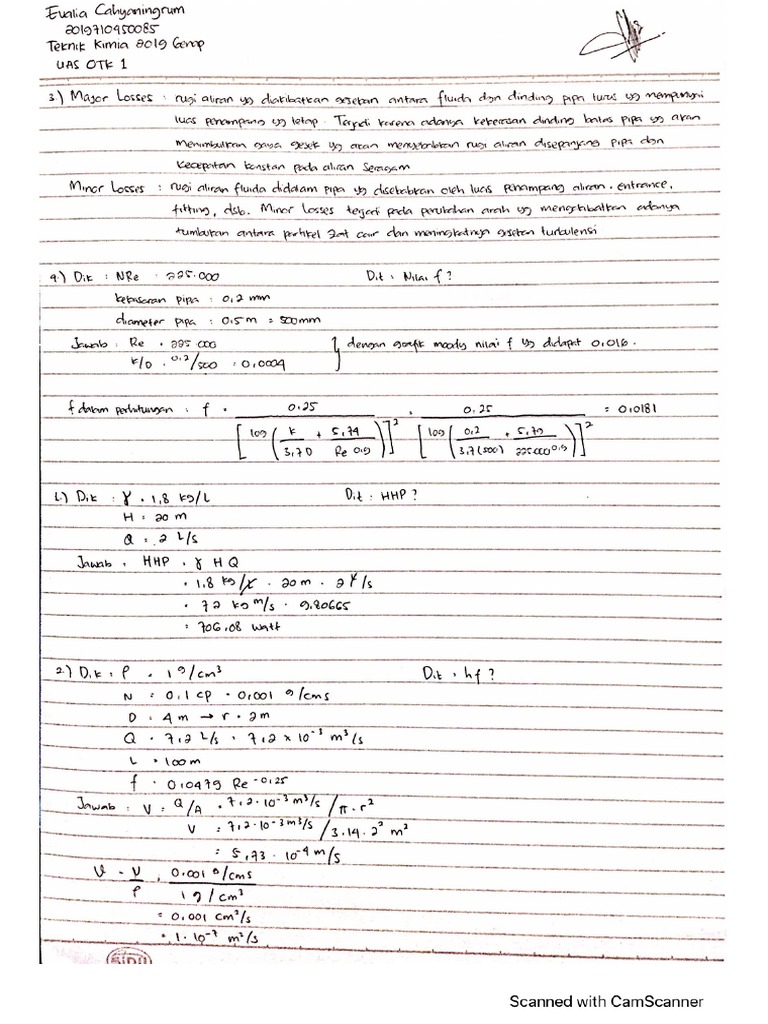 Eualia Cahyaningrum
2019710450085
Teknik Kimia 2019 Genap
UAS OTK 1
3.) Major Losses : rugi aliran yg diakibatkan gesekan antara fluida dgn dinding pipa lurus yg mempunyai
luas penampang yg tetap. Terjadi karena adanya kekasaran dinding batas pipa yg akan
menimbulkan gaya gesek yg akan menyebabkan rugi aliran disepanjang pipa dgn
kecepatan konstan pada aliran seragam
Minor Losses : rugi aliran fluida didalam pipa yg disebabkan oleh luas penampang aliran, entrance,
fitting, dsb. Minor Losses terjadi pada perubahan arah yg mengakibatkan adanya
tumbukan antara partikel zat cair dan meningkatnya gesekan turbulensi
4.) Dik : NRe : 225.000 Dit : Nilai f ?
kekasaran pipa : 0,2 mm
diameter pipa : 0.5 m = 500 mm
Jawab : Re = 225 000 } dengan grafik moody nilai f yg didapat 0,016.
k/D = 0,2/500 = 0,0004
f dalam perhitungan : f = 0.25 / [log (k/3,7D + 5,74/Re 0,9)]² = 0,25 / [log (0,2/3,7(500) + 5,74/225000 0,9)]² = 0,0181
1.) Dik : γ = 1,8 kg/L Dit : HHP ?
H = 20 m
Q = 2 L/s
Jawab : HHP = γ H Q
= 1.8 kg/L . 20 m . 2 L/s
= 72 kg m/s . 9.80665
= 706,08 watt
2.) Dik : ρ = 1 g/cm³ Dit : hf ?
N = 0,1 cp = 0,001 g/cms
D = 4 m → r = 2m
Q = 7,2 L/s = 7,2 x 10⁻³ m³/s
L = 100 m
f = 0,0479 Re⁻⁰,²⁵
Jawab : V = Q/A = 7,2.10⁻³ m³/s / π.r²
V = 7,2.10⁻³ m³/s / 3.14.2² m²
= 5,73 . 10⁻⁴ m/s
υ = ν/ρ = 0,001 g/cms / 1 g/cm³
= 0,001 cm²/s
= 1.10⁻⁷ m²/s
SIDU
Scanned with CamScanner